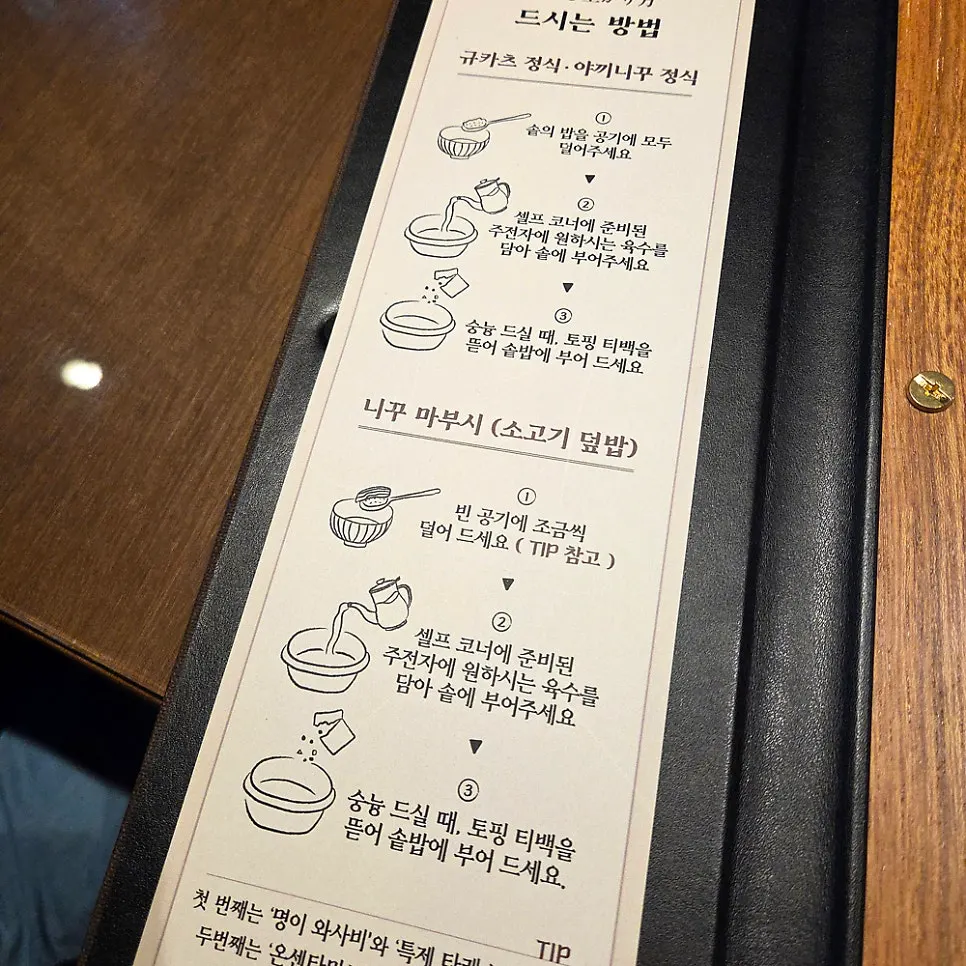 드시는 방법
규카츠 정식 · 야끼니꾸 정식
①
솥의 밥을 공기에 모두
덜어주세요
▼
②
셀프 코너에 준비된
주전자에 원하시는 육수를
담아 솥에 부어주세요
▼
③
숭늉 드실 때, 토핑 티백을
뜯어 솥밥에 부어 드세요
니꾸 마부시 (소고기 덮밥)
①
빈 공기에 조금씩
덜어 드세요 ( TIP 참고 )
▼
②
셀프 코너에 준비된
주전자에 원하시는 육수를
담아 솥에 부어주세요
▼
③
숭늉 드실 때, 토핑 티백을
뜯어 솥밥에 부어 드세요.
TIP
첫 번째는 '명이 와사비'와 '특제 타래
두번째는